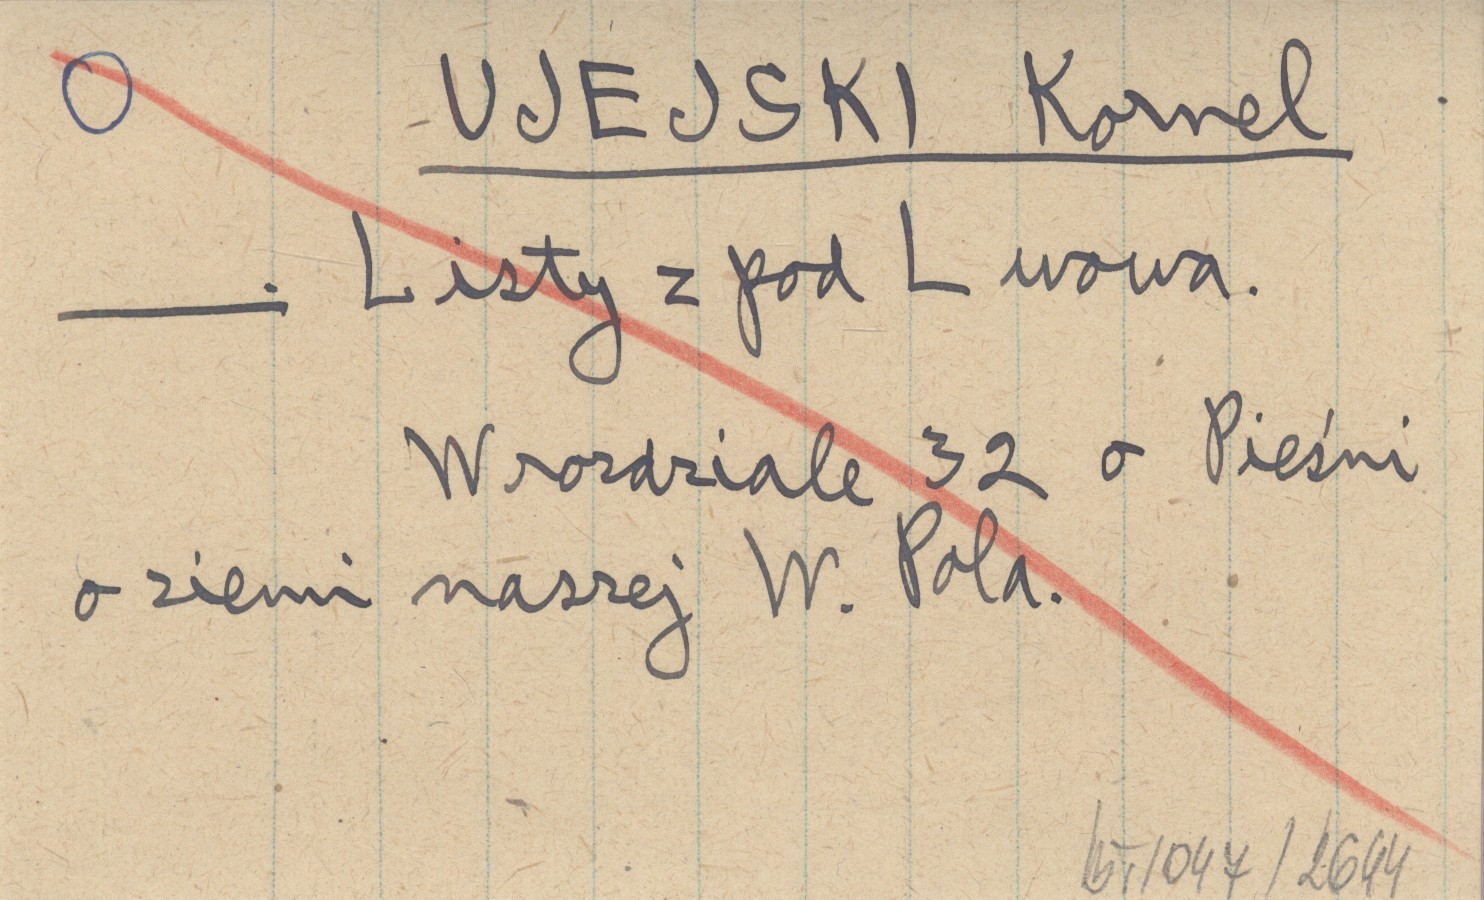 UJEJSKI Kornel
. Listy z pod Lwowa.
W rozdziale 32 o Pieśni
o ziemi naszej W. Pola.
/047/2644